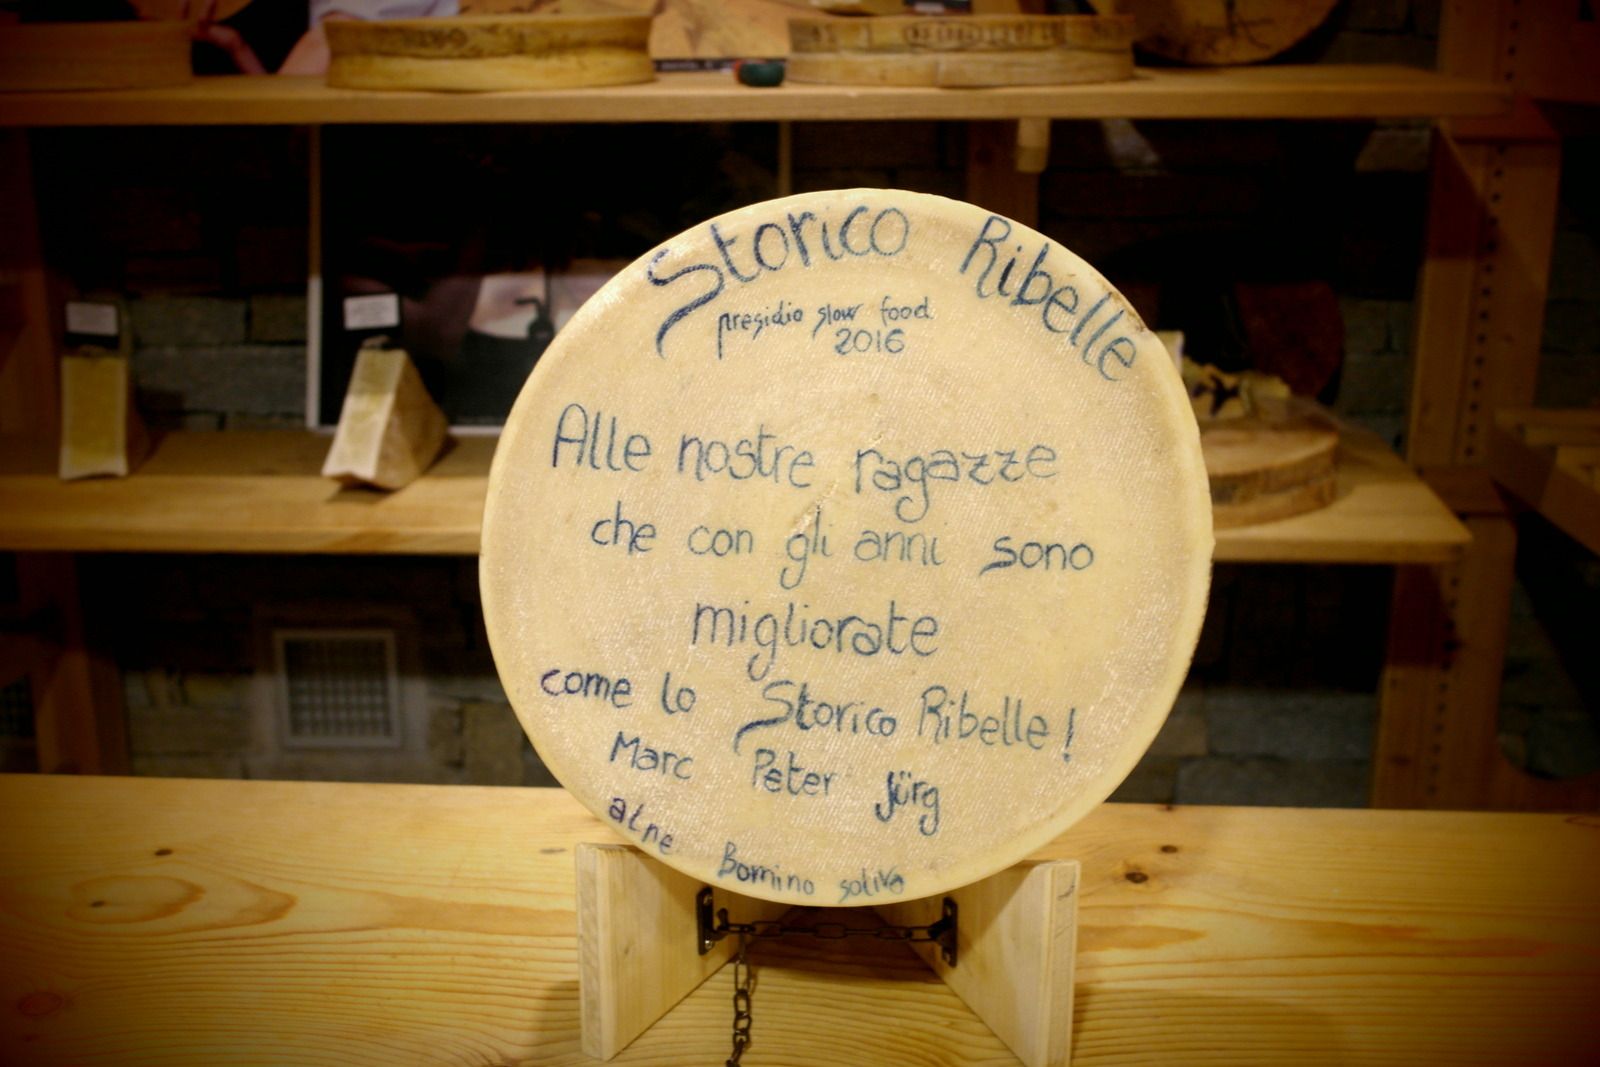 Storico Ribelle
presidio slow food
2016
Alle nostre ragazze
che con gli anni sono
migliorate
come lo Storico Ribelle!
Marc Peter Jürg
alpe Bomino soliva